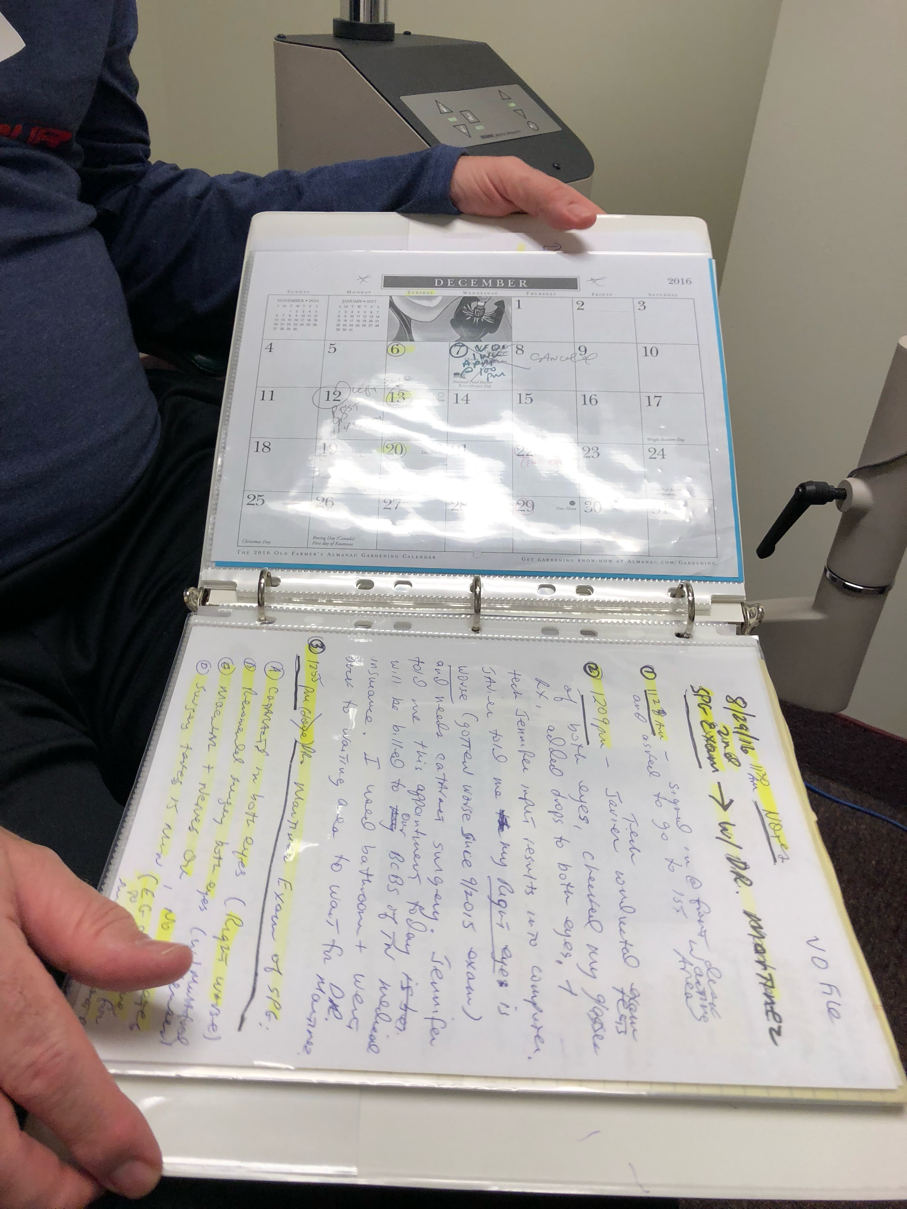 DECEMBER
2016
SUNDAY MONDAY TUESDAY WEDNESDAY THURSDAY FRIDAY SATURDAY
NOVEMBER • 2016 JANUARY • 2017
1 2 3
4 5 6 7 8 9 10
1 WK
@ 1:00 pm
CANCELED
11 12 13 14 15 16 17
Wright Brothers Day
18 19 20 21 22 23 24
25 26 27 28 29 30 31
Christmas Day
Boxing Day (Canada)
First day of Kwanzaa
THE 2016 OLD FARMER'S ALMANAC GARDENING CALENDAR
GET GARDENING KNOW-HOW AT ALMANAC.COM/GARDENING
VO File
8/29/16 Notes
2ND
SPG Exam → W/ DR. Martinez
① – signed in @ front desk
and asked to go to 1st waiting
Area
② 1209pm – Tech Javier conducted exam tests
of both eyes, checked my glasses
RX, added drops to both eyes, +
tech Jennifer input results into computer.
Javier told me my Right eye is
worse (gotten worse since 9/2015 exam)
and needs cataract surgery. Jennifer
told me this appointment today
will be billed to our BCBS of TN medical
insurance. I used bathroom + went
back to waiting area to wait for DR.
③ 1255 pm DR Martinez Exam of SPG:
Ⓐ Cataracts in both eyes (Right worse)
Ⓑ Recommend surgery both eyes
Ⓒ Macula + Nerves OK
Ⓓ Surgery takes 15 min, No